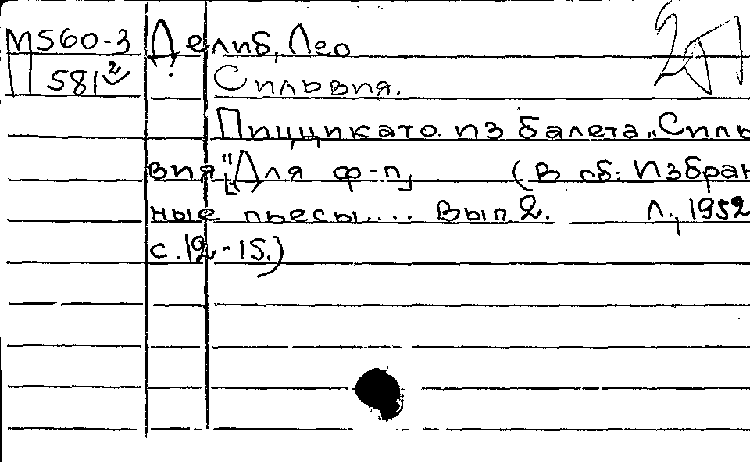 М560-3 Делиб, Лео
П 581² Сильвия.
Пиццикато из балета „Силь
вия" [Для ф-п] (В сб: Избран
ные пьесы... Вып 2. Л., 1952
с. 12-15.)